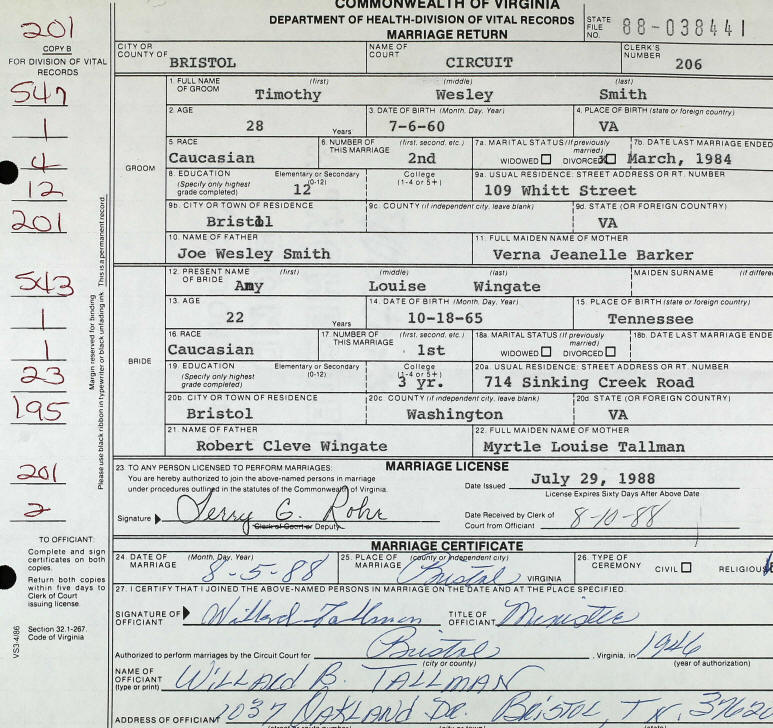 COMMONWEALTH OF VIRGINIA
DEPARTMENT OF HEALTH-DIVISION OF VITAL RECORDS
MARRIAGE RETURN
STATE FILE NO. 88-038441
201
COPY B
FOR DIVISION OF VITAL RECORDS
547
1
4
12
201
543
1
1
23
195
201
2
Margin reserved for binding
Please use black ribbon in typewriter or black unfading ink. This is a permanent record.
CITY OR COUNTY OF BRISTOL NAME OF COURT CIRCUIT CLERK'S NUMBER 206
GROOM
1. FULL NAME OF GROOM (first) Timothy (middle) Wesley (last) Smith
2. AGE 28 Years 3. DATE OF BIRTH (Month, Day, Year) 7-6-60 4. PLACE OF BIRTH (state or foreign country) VA
5. RACE Caucasian 6. NUMBER OF THIS MARRIAGE (first, second, etc.) 2nd 7a. MARITAL STATUS (If previously married) WIDOWED DIVORCED X 7b. DATE LAST MARRIAGE ENDED March, 1984
8. EDUCATION (Specify only highest grade completed) Elementary or Secondary (0-12) 12 College (1-4 or 5+) 9a. USUAL RESIDENCE: STREET ADDRESS OR RT. NUMBER 109 Whitt Street
9b. CITY OR TOWN OF RESIDENCE Bristol 9c. COUNTY (if independent city, leave blank) 9d. STATE (OR FOREIGN COUNTRY) VA
10. NAME OF FATHER Joe Wesley Smith 11. FULL MAIDEN NAME OF MOTHER Verna Jeanelle Barker
BRIDE
12. PRESENT NAME OF BRIDE (first) Amy (middle) Louise (last) Wingate MAIDEN SURNAME
13. AGE 22 Years 14. DATE OF BIRTH (Month, Day, Year) 10-18-65 15. PLACE OF BIRTH (state or foreign country) Tennessee
16. RACE Caucasian 17. NUMBER OF THIS MARRIAGE (first, second, etc.) 1st 18a. MARITAL STATUS (If previously married) WIDOWED DIVORCED 18b. DATE LAST MARRIAGE ENDE
19. EDUCATION (Specify only highest grade completed) Elementary or Secondary (0-12) College (1-4 or 5+) 3 yr. 20a. USUAL RESIDENCE: STREET ADDRESS OR RT. NUMBER 714 Sinking Creek Road
20b. CITY OR TOWN OF RESIDENCE Bristol 20c. COUNTY (if independent city, leave blank) Washington 20d. STATE (OR FOREIGN COUNTRY) VA
21. NAME OF FATHER Robert Cleve Wingate 22. FULL MAIDEN NAME OF MOTHER Myrtle Louise Tallman
23. TO ANY PERSON LICENSED TO PERFORM MARRIAGES: MARRIAGE LICENSE
You are hereby authorized to join the above-named persons in marriage
under procedures outlined in the statutes of the Commonwealth of Virginia.
Date Issued July 29, 1988
License Expires Sixty Days After Above Date
Signature Terry G. Rohr
Clerk of Court or Deputy
Date Received by Clerk of Court from Officiant 8-10-88
TO OFFICIANT:
Complete and sign certificates on both copies.
Return both copies within five days to Clerk of Court issuing license.
Section 32.1-267.
Code of Virginia
VS3-4/86
MARRIAGE CERTIFICATE
24. DATE OF MARRIAGE (Month, Day, Year) 8-5-88 25. PLACE OF MARRIAGE (county or independent city) Bristol, VIRGINIA 26. TYPE OF CEREMONY CIVIL RELIGIOUS
27. I CERTIFY THAT I JOINED THE ABOVE-NAMED PERSONS IN MARRIAGE ON THE DATE AND AT THE PLACE SPECIFIED.
SIGNATURE OF OFFICIANT Willard Tallman TITLE OF OFFICIANT Minister
Authorized to perform marriages by the Circuit Court for Bristol, Virginia, in 1946
(city or county) (year of authorization)
NAME OF OFFICIANT (type or print) WILLARD B. TALLMAN
ADDRESS OF OFFICIANT 1037 OAKLAND DR. BRISTOL, TN. 37620